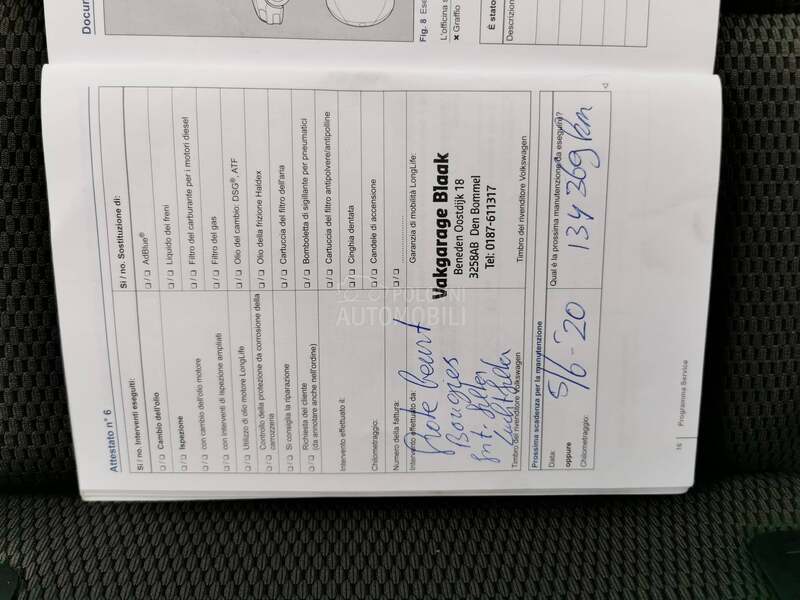 Docum
Fig. 8 Ese
L'officina s
✖ Graffio
È stato
Descrizion
Attestato n° 6
Sì / no. Interventi eseguiti:
❑ / ❑ Cambio dell'olio
❑ / ❑ Ispezione
❑ / ❑ con cambio dell'olio motore
❑ / ❑ con interventi di ispezione ampliati
❑ / ❑ Utilizzo di olio motore LongLife
❑ / ❑ Controllo della protezione da corrosione della carrozzeria
❑ / ❑ Si consiglia la riparazione
❑ / ❑ Richiesta del cliente
(da annotare anche nell'ordine)
Intervento effettuato il:
Chilometraggio:
Numero della fattura:
Intervento effettuato da:
Grote beurt
Bougies
Int. filter
Luchtfilter
Timbro del rivenditore Volkswagen
Sì / no. Sostituzione di:
❑ / ❑ AdBlue®
❑ / ❑ Liquido dei freni
❑ / ❑ Filtro del carburante per i motori diesel
❑ / ❑ Filtro del gas
❑ / ❑ Olio del cambio: DSG®, ATF
❑ / ❑ Olio della frizione Haldex
❑ / ❑ Cartuccia del filtro dell'aria
❑ / ❑ Bomboletta di sigillante per pneumatici
❑ / ❑ Cartuccia del filtro antipolvere/antipolline
❑ / ❑ Cinghia dentata
❑ / ❑ Candele di accensione
❑ / ❑ ....................
Garanzia di mobilità LongLife:
Vakgarage Blaak
Beneden Oostdijk 18
3258AB Den Bommel
Tel: 0187-611317
Timbro del rivenditore Volkswagen
Prossima scadenza per la manutenzione
Data:
5/6-'20
oppure
Chilometraggio:
Qual è la prossima manutenzione da eseguire?
134369 km
16 | Programma Service
POLLINI
AUTOMOBILI